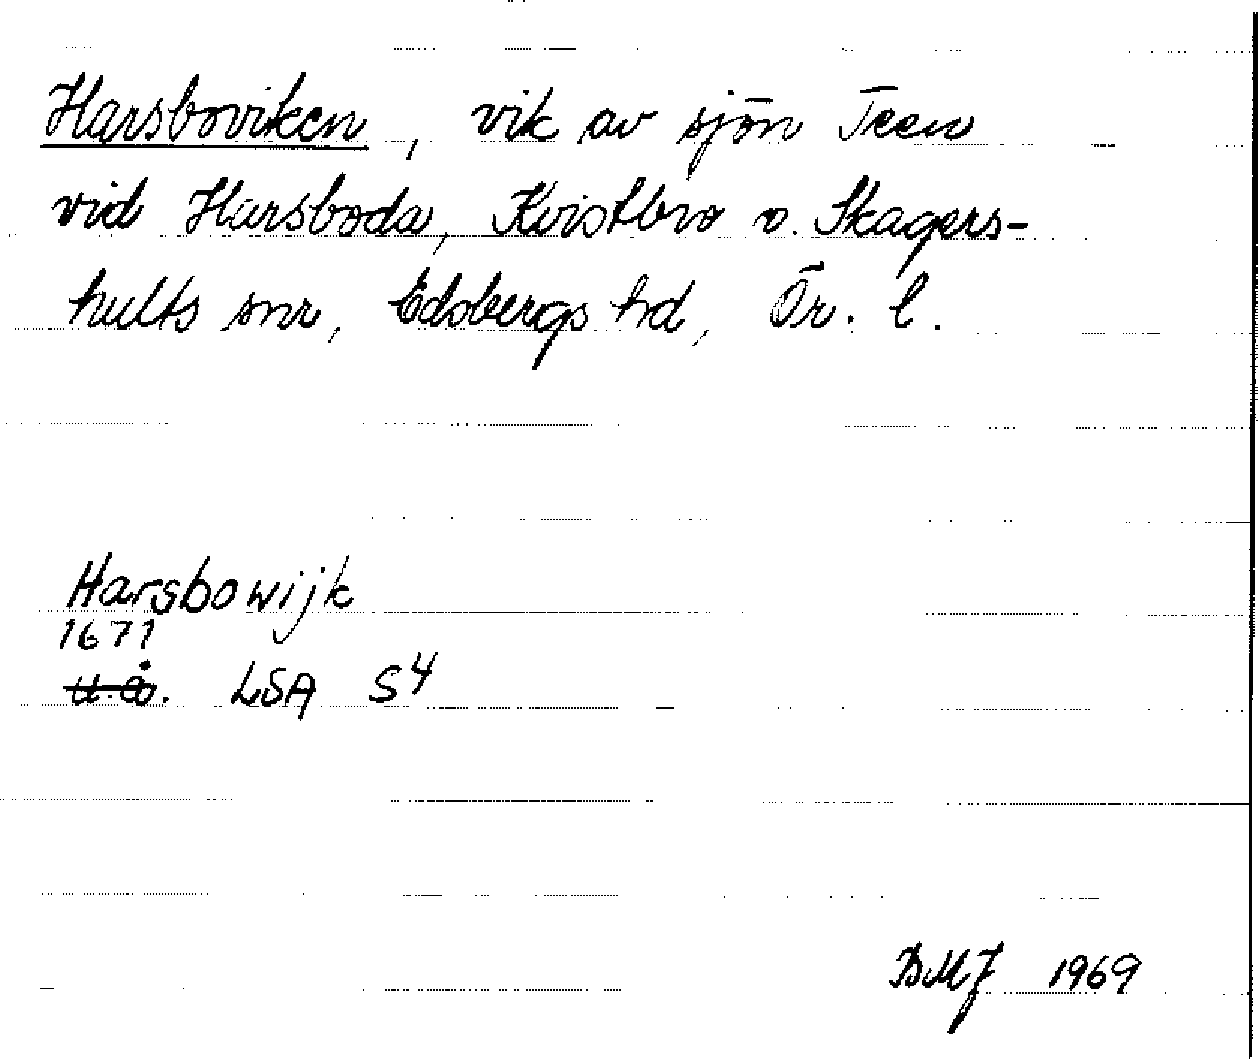 Harsboviken, vik av sjön Teen
vid Harsboda, Kvistbro o. Skagers-
hults snr, Edsbergs hd, Ör. l.
Harsbowijk
1671
u.å. LSA S4
BMJ 1969